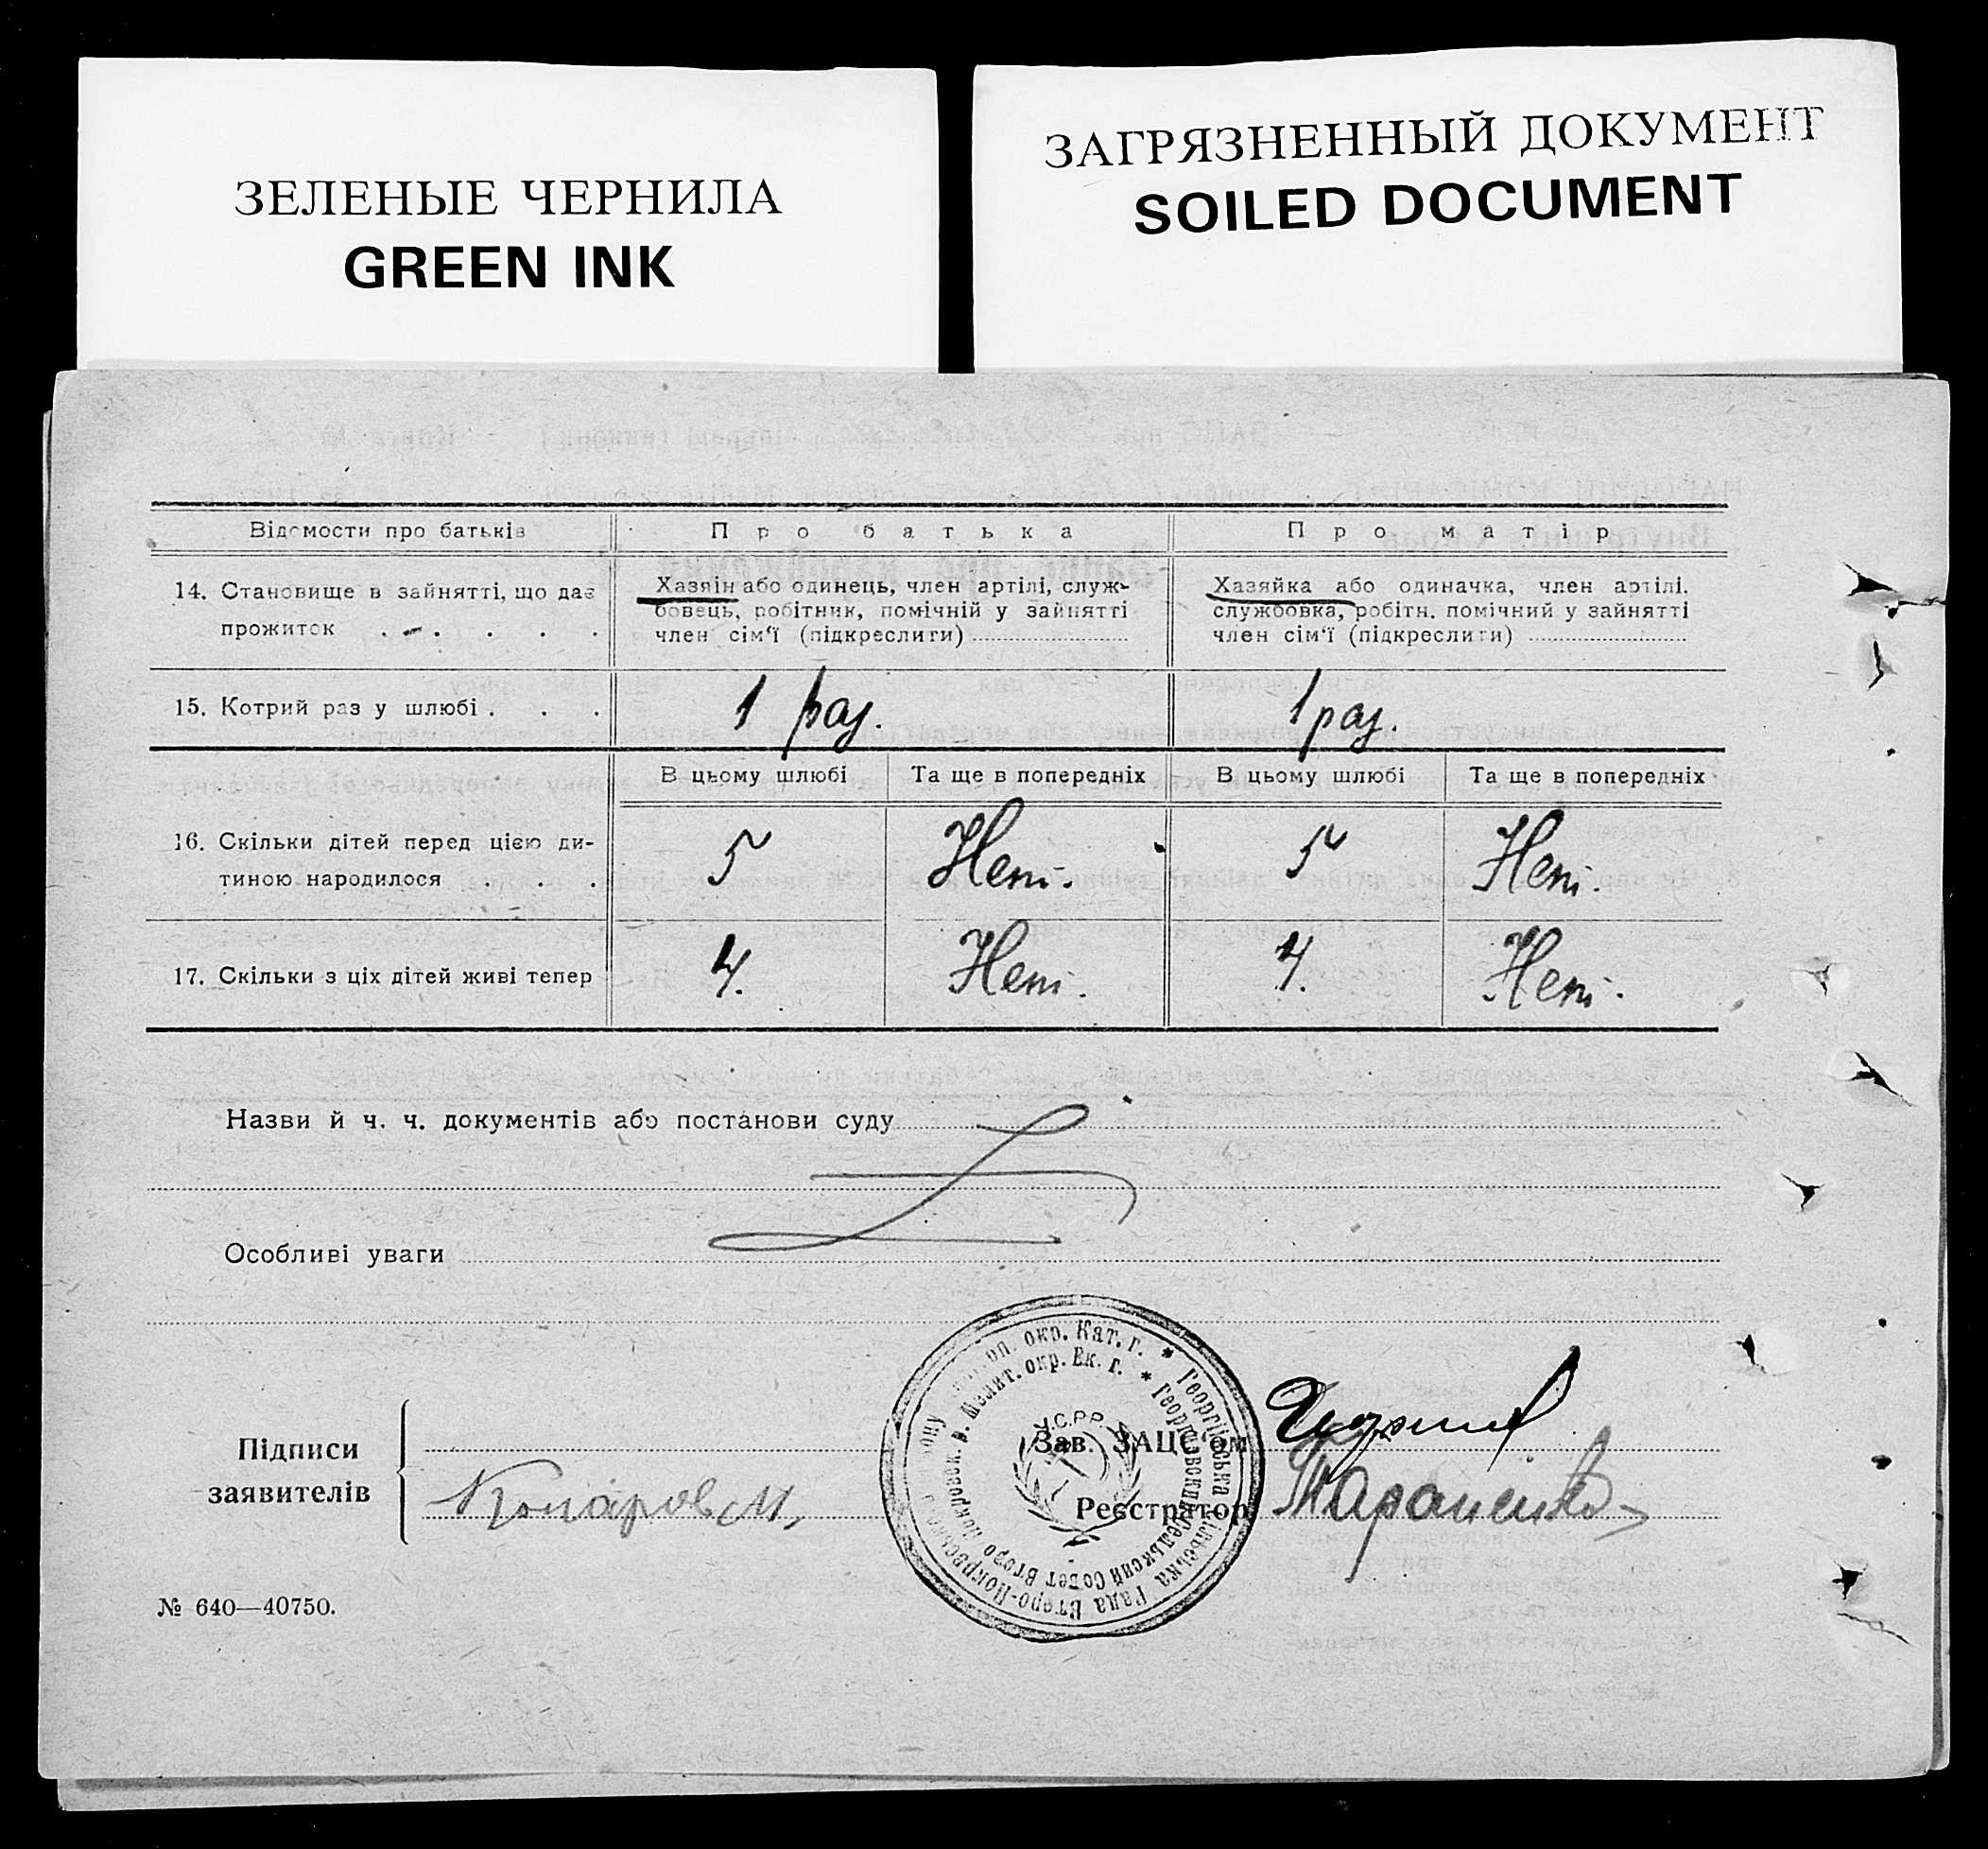 ЗЕЛЕНЫЕ ЧЕРНИЛА
GREEN INK
ЗАГРЯЗНЕННЫЙ ДОКУМЕНТ
SOILED DOCUMENT
Відомости про батьків
Про батька
Про матір
14. Становище в зайнятті, що дає
прожиток . . . . .
Хазяін або одинець, член артілі, служ-
бовець, робітник, помічній у зайнятті
член сім'ї (підкреслити)
Хазяйка або одиначка, член артілі.
службовка, робітн. помічний у зайнятті
член сім'ї (підкреслити)
15. Котрий раз у шлюбі . . .
1 раз.
1 раз.
В цьому шлюбі
Та ще в попередніх
В цьому шлюбі
Та ще в попередніх
16. Скільки дітей перед цією ди-
тиною народилося . . .
5
Нет.
5
Нет.
17. Скільки з ціх дітей живі тепер
4.
Нет.
4.
Нет.
Назви й ч. ч. документів або постанови суду
Особливі уваги
окр. Кат. г. * Георгіївська Сільська Рада Втеро-Покровськ
Мелит. окр. Ек. г. * Георгиевский Сельский Совет Второ покровск. р.
У.С.Р.Р.
Підписи
заявителів
Зав. ЗАЦС'ом
Реєстратор
Тараненко
№ 640—40750.